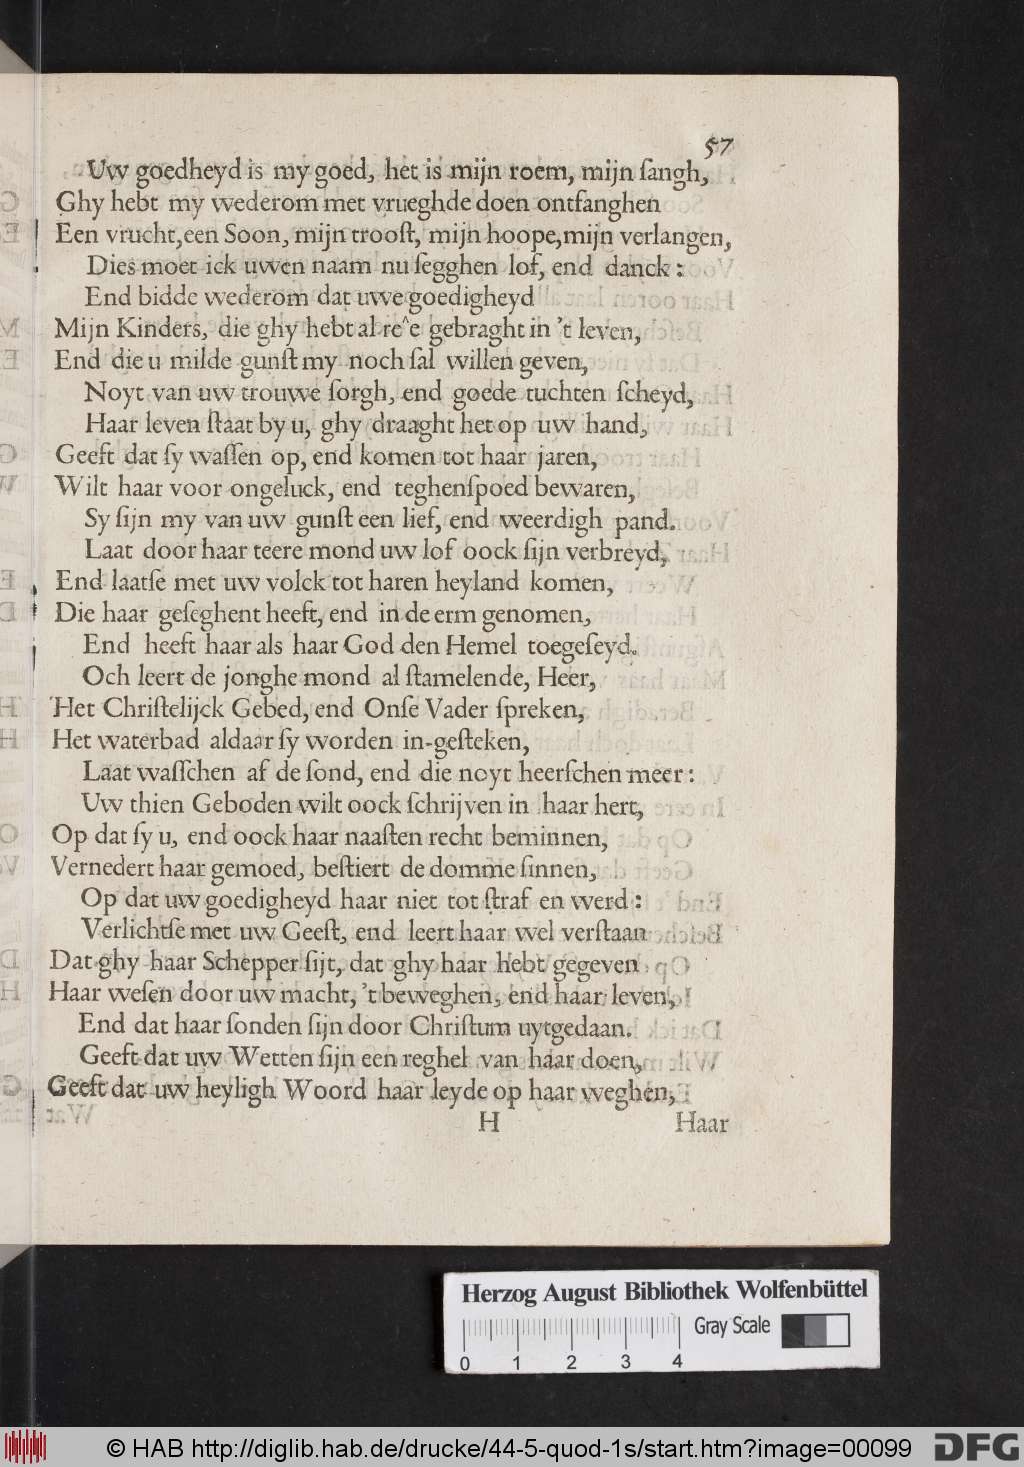 57
Uw goedheyd is my goed, het is mijn roem, mijn ſangh,
Ghy hebt my wederom met vrueghde doen ontfanghen
Een vrucht, een Soon, mijn trooſt, mijn hoope, mijn verlangen,
Dies moet ick uwen naam nu ſegghen lof, end danck:
End bidde wederom dat uwe goedigheyd
Mijn Kinders, die ghy hebt al re^e gebraght in 't leven,
End die u milde gunſt my noch ſal willen geven,
Noyt van uw trouwe ſorgh, end goede tuchten ſcheyd,
Haar leven ſtaat by u, ghy draaght het op uw hand,
Geeft dat ſy waſſen op, end komen tot haar jaren,
Wilt haar voor ongeluck, end teghenſpoed bewaren,
Sy ſijn my van uw gunſt een lief, end weerdigh pand.
Laat door haar teere mond uw lof oock ſijn verbreyd,
End laatſe met uw volck tot haren heyland komen,
Die haar geſeghent heeft, end in de erm genomen,
End heeft haar als haar God den Hemel toegeſeyd.
Och leert de jonghe mond al ſtamelende, Heer,
Het Chriſtelijck Gebed, end Onſe Vader ſpreken,
Het waterbad aldaar ſy worden in-geſteken,
Laat waſſchen af de ſond, end die noyt heerſchen meer:
Uw thien Geboden wilt oock ſchrijven in haar hert,
Op dat ſy u, end oock haar naaſten recht beminnen,
Vernedert haar gemoed, beſtiert de domme ſinnen,
Op dat uw goedigheyd haar niet tot ſtraf en werd:
Verlichtſe met uw Geeſt, end leert haar wel verſtaan
Dat ghy haar Schepper ſijt, dat ghy haar hebt gegeven
Haar weſen door uw macht, 't beweghen, end haar leven,
End dat haar ſonden ſijn door Chriſtum uytgedaan.
Geeft dat uw Wetten ſijn een reghel van haar doen,
Geeft dat uw heyligh Woord haar leyde op haar weghen,
H Haar
Herzog August Bibliothek Wolfenbüttel
Gray Scale
0 1 2 3 4
© HAB http://diglib.hab.de/drucke/44-5-quod-1s/start.htm?image=00099
DFG